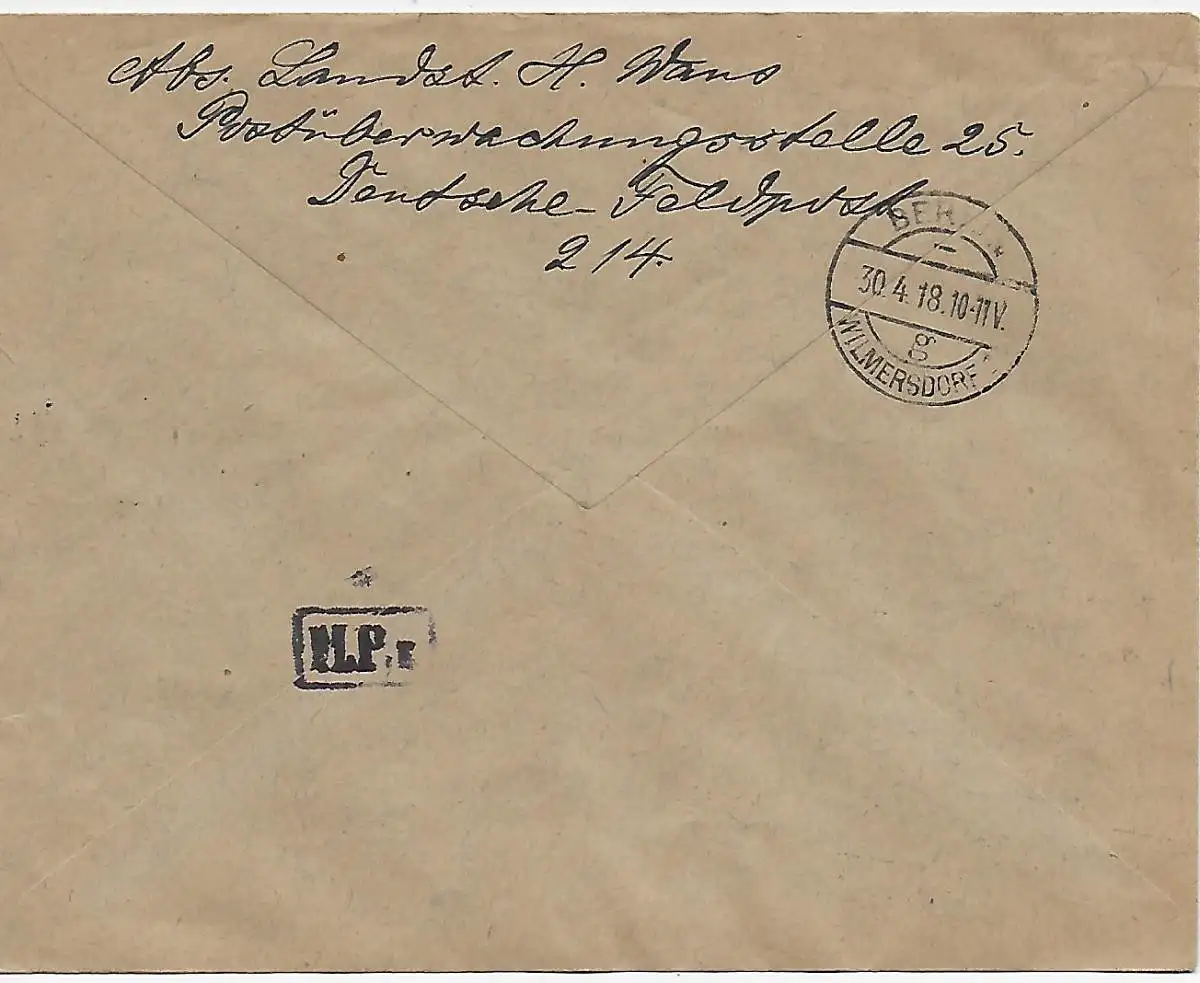 Abs. Landst. H. Wans
Postüberwachungsstelle 25.
Deutsche Feldpost
214.
BERLIN
30.4.18.10-11V.
g
WILMERSDORF